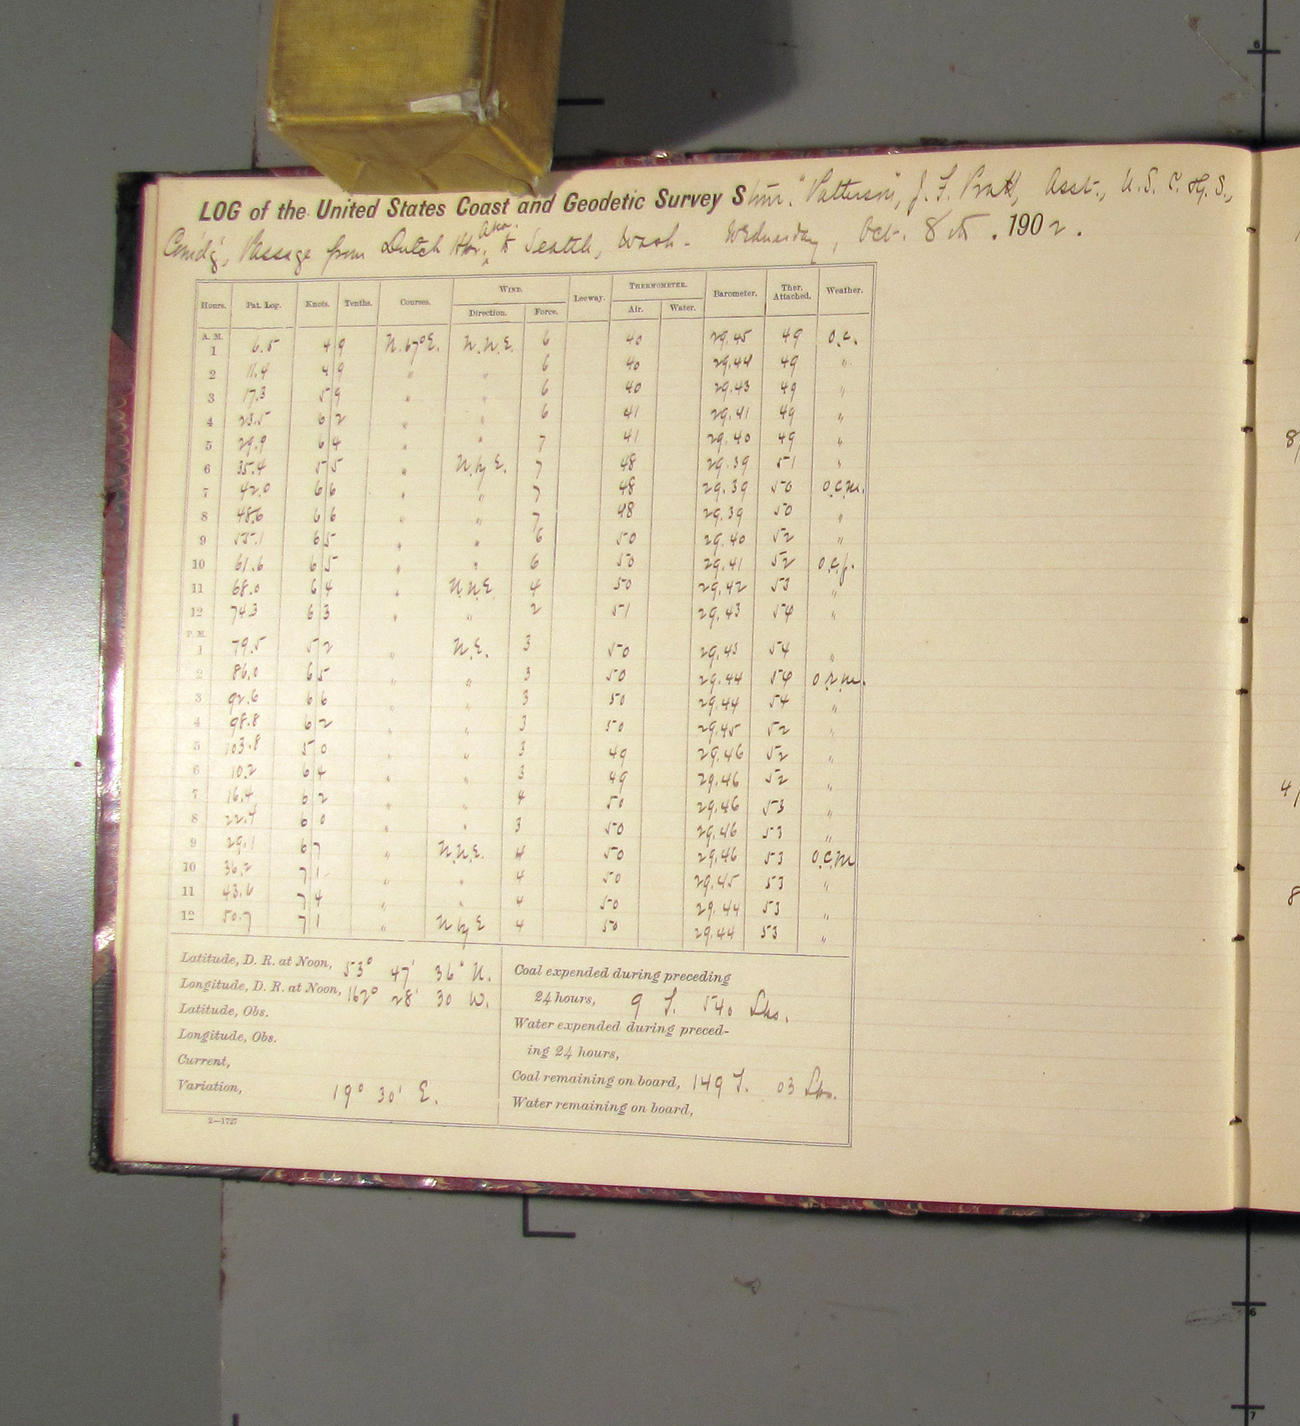 LOG of the United States Coast and Geodetic Survey Stmr. "Patterson", J. F. Pratt, Asst., U. S. C. & G. S.,
Com'd'g, Passage from Dutch Hbr., Aka. to Seattle, Wash. - Wednesday, Oct. 8th. 1902.
Hours. Pat. Log. Knots. Tenths. Courses. WIND. Leeway. THERMOMETER. Barometer. Ther. Attached. Weather.
Direction. Force. Air. Water.
A. M.
1 6.5 4 9 N.67°E. N.N.E. 6 40 29.45 49 O.C.
2 11.4 4 9 " " 6 40 29.44 49 "
3 17.3 5 9 " " 6 40 29.43 49 "
4 23.5 6 2 " " 6 41 29.41 49 "
5 29.9 6 4 " " 7 41 29.40 49 "
6 35.4 5 5 " N.by E. 7 48 29.39 51 "
7 42.0 6 6 " " 7 48 29.39 50 O.C.M.
8 48.6 6 6 " " 7 48 29.39 50 "
9 55.1 6 5 " " 6 50 29.40 52 "
10 61.6 6 5 " " 6 50 29.41 52
11 68.0 6 4 " N.N.E. 4 50 29.42 53 "
12 74.3 6 3 " " 2 51 29.43 54 "
P. M.
1 79.5 5 2 " N.E. 3 50 29.43 54 "
2 86.0 6 5 " " 3 50 29.44 54 O.R.M.
3 92.6 6 6 " " 3 50 29.44 54 "
4 98.8 6 2 " " 3 50 29.45 52 "
5 103.8 5 0 " " 3 49 29.46 52 "
6 10.2 6 4 " " 3 49 29.46 52 "
7 16.4 6 2 " " 4 50 29.46 53 "
8 22.4 6 0 " " 3 50 29.46 53 "
9 29.1 6 7 " N.N.E. 4 50 29.46 53 O.C.M
10 36.2 7 1 " " 4 50 29.45 53 "
11 43.6 7 4 " " 4 50 29.44 53 "
12 50.7 7 1 " N by E 4 50 29.44 53 "
Latitude, D. R. at Noon, 53° 47' 36" N.
Longitude, D. R. at Noon, 162° 28' 30 W.
Latitude, Obs.
Longitude, Obs.
Current,
Variation, 19° 30' E.
Coal expended during preceding
24 hours, 9 T. 540 Lbs.
Water expended during preced-
ing 24 hours,
Coal remaining on board, 149 T. 03 Lbs.
Water remaining on board,
2—1727
8
4
8
6
6
7